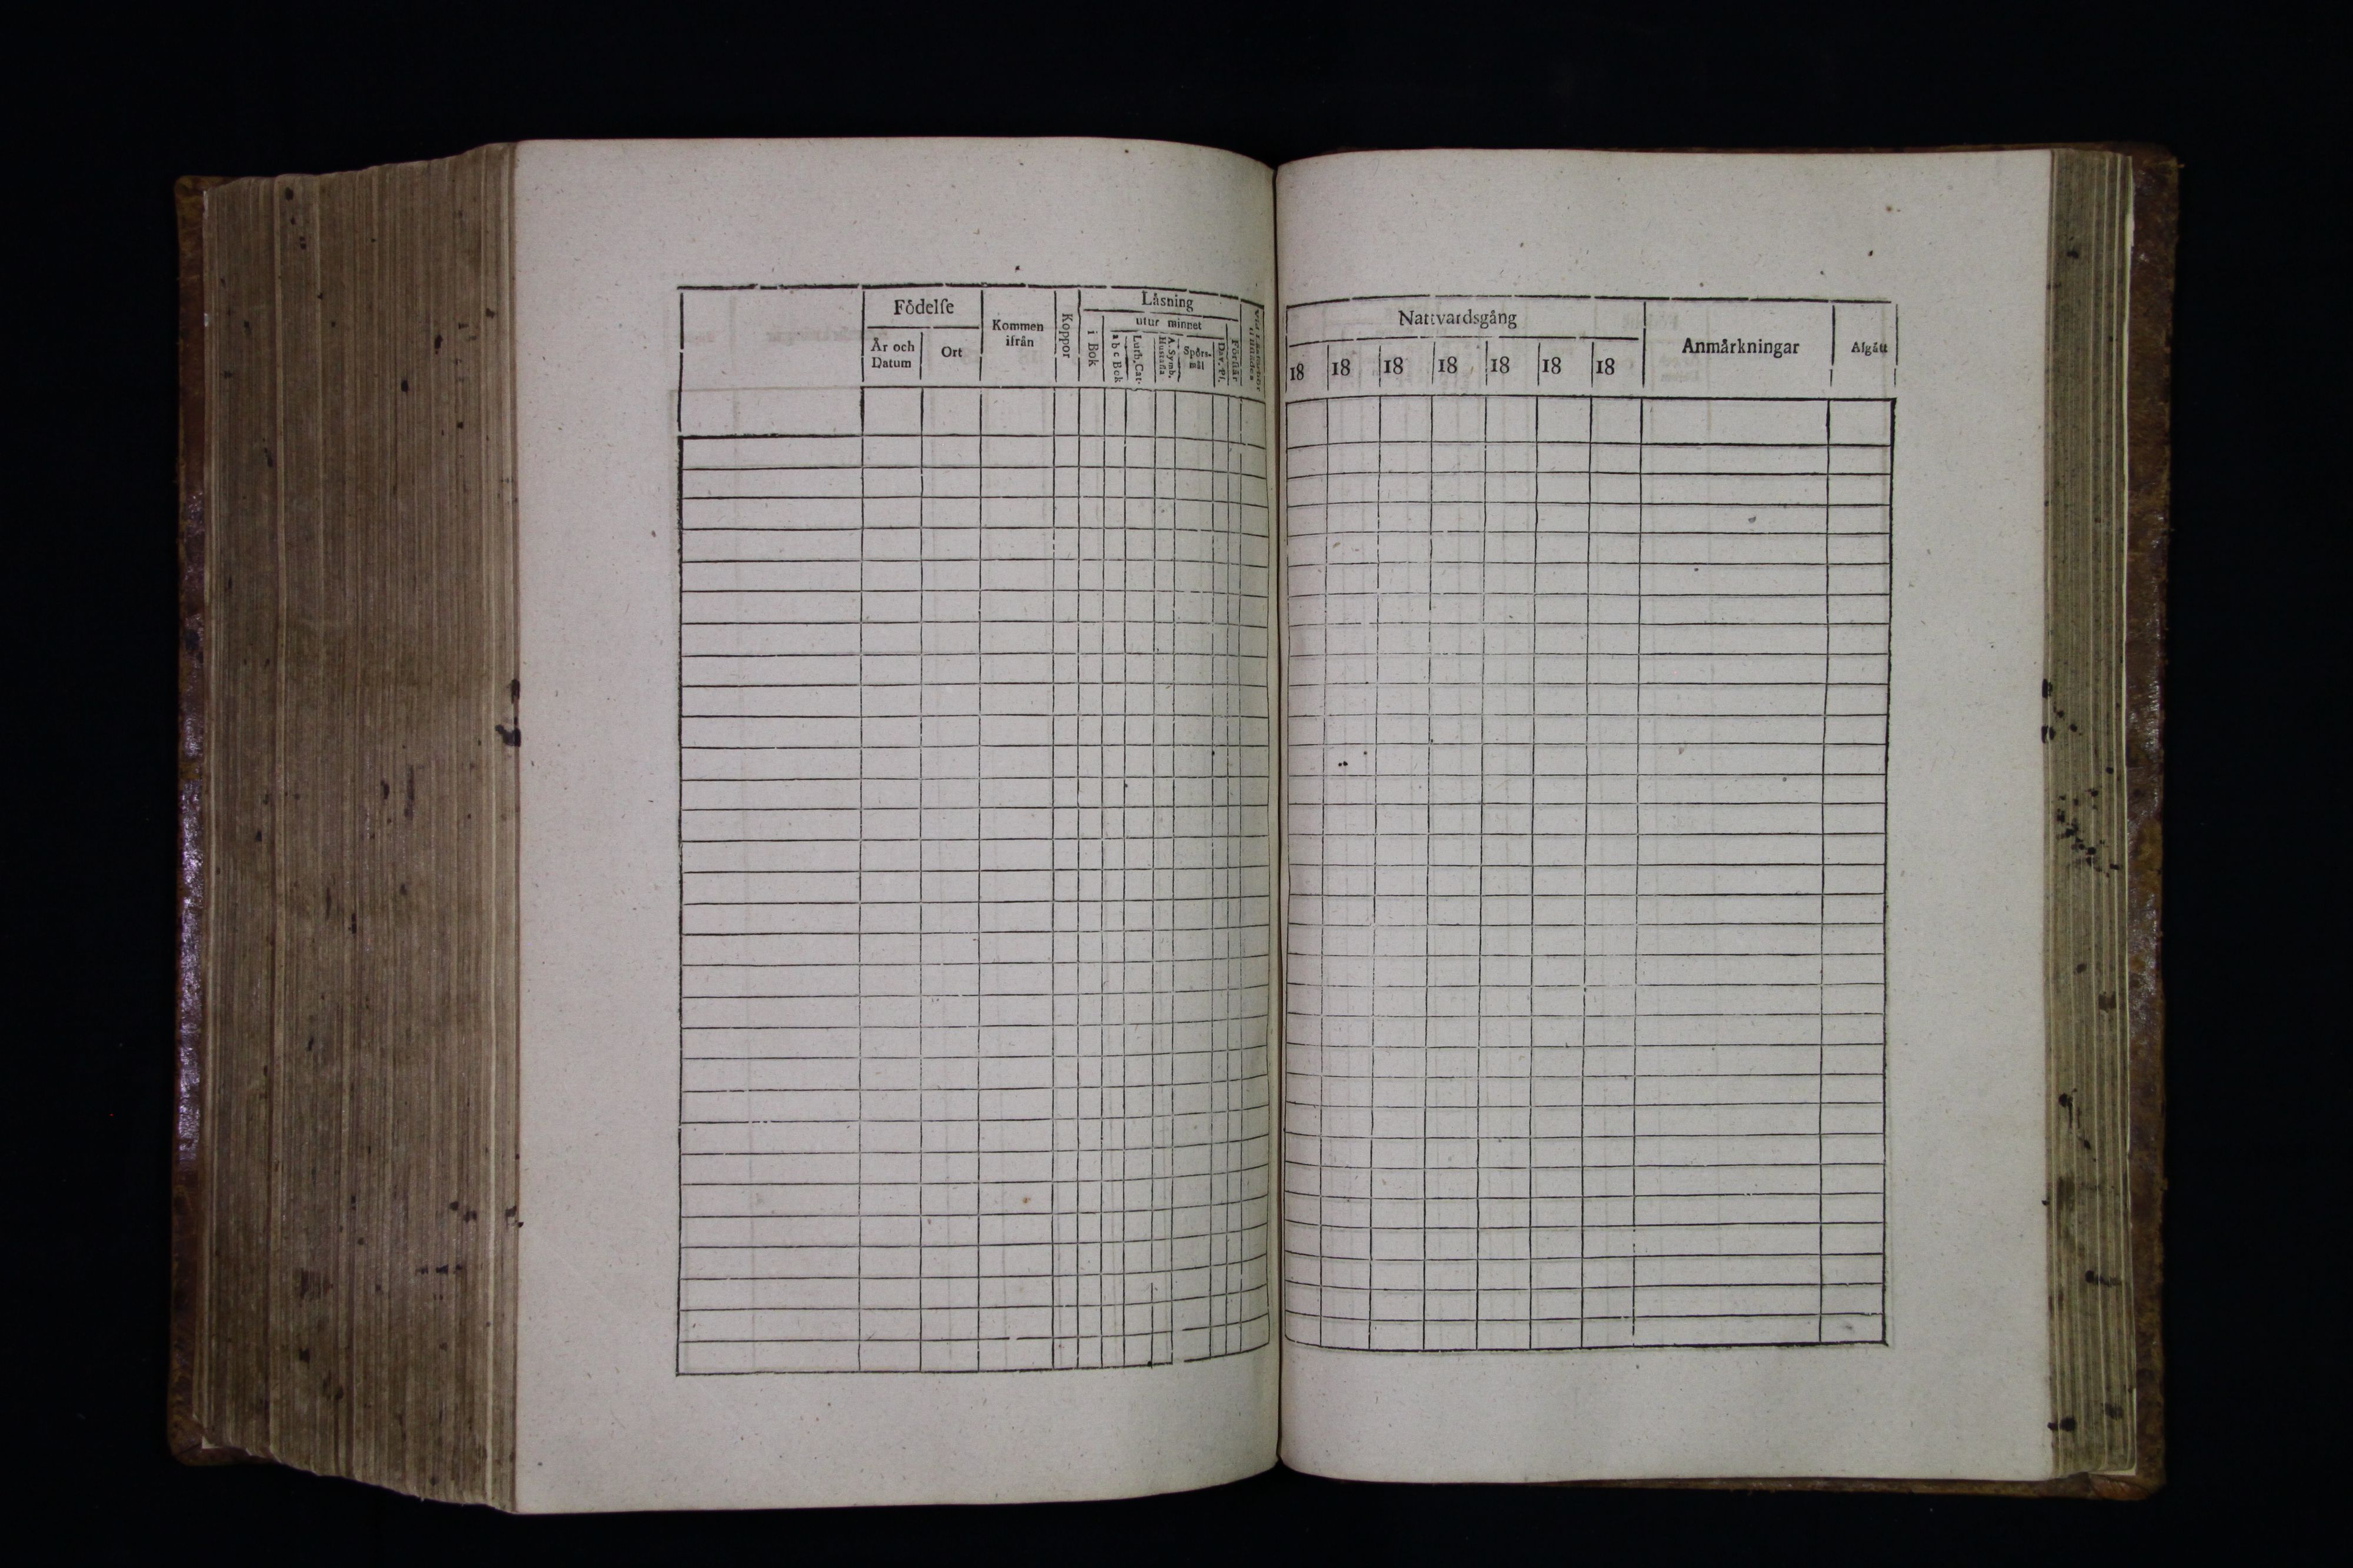 Födelſe
År och
Datum
Ort
Kommen
ifrån
Koppor
Läsning
i Bok
utur minnet
a b c Bok
Luth. Cat.
A. Symb.
Hustafla
Spörs-
mål
Dav. Pſ.
Förſtår
Nattvardsgång
18 18 18 18 18 18 18
Anmärkningar
Afgått